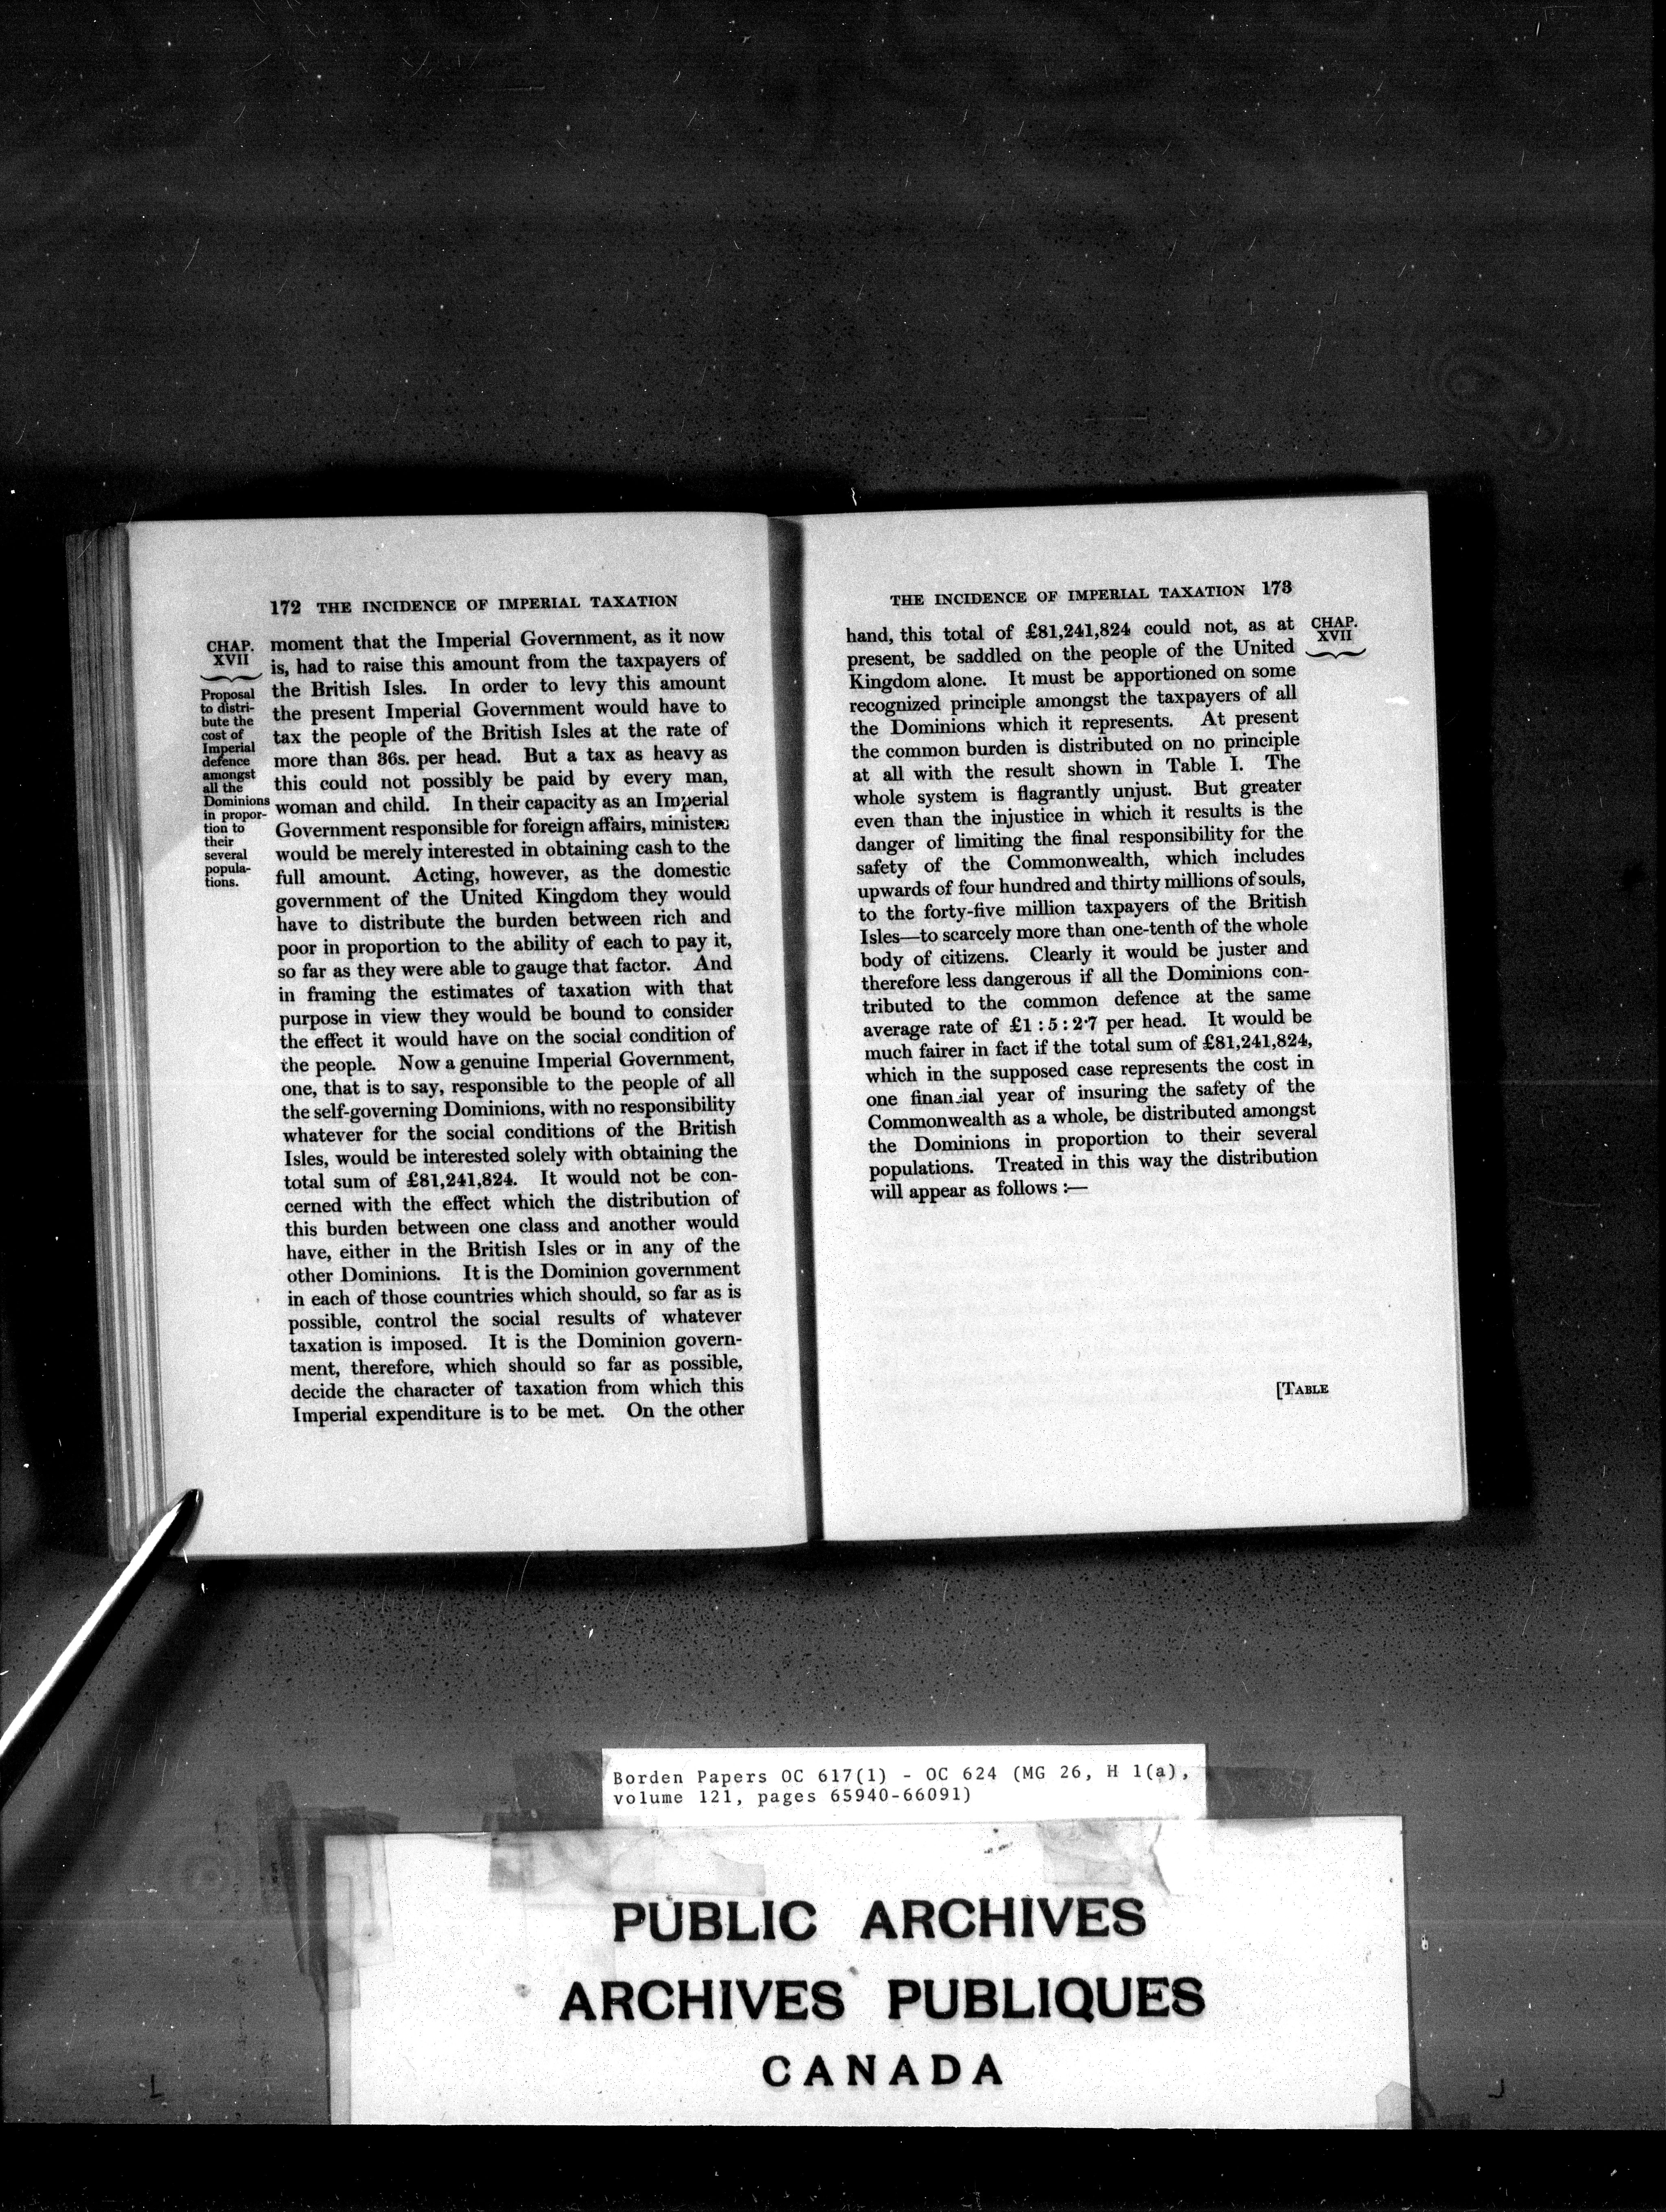 172 THE INCIDENCE OF IMPERIAL TAXATION
CHAP.
XVII
Proposal
to distri-
bute the
cost of
Imperial
defence
amongst
all the
Dominions
in propor-
tion to
their
several
popula-
tions.
moment that the Imperial Government, as it now
is, had to raise this amount from the taxpayers of
the British Isles. In order to levy this amount
the present Imperial Government would have to
tax the people of the British Isles at the rate of
more than 36s. per head. But a tax as heavy as
this could not possibly be paid by every man,
woman and child. In their capacity as an Imperial
Government responsible for foreign affairs, ministers
would be merely interested in obtaining cash to the
full amount. Acting, however, as the domestic
government of the United Kingdom they would
have to distribute the burden between rich and
poor in proportion to the ability of each to pay it,
so far as they were able to gauge that factor. And
in framing the estimates of taxation with that
purpose in view they would be bound to consider
the effect it would have on the social condition of
the people. Now a genuine Imperial Government,
one, that is to say, responsible to the people of all
the self-governing Dominions, with no responsibility
whatever for the social conditions of the British
Isles, would be interested solely with obtaining the
total sum of £81,241,824. It would not be con-
cerned with the effect which the distribution of
this burden between one class and another would
have, either in the British Isles or in any of the
other Dominions. It is the Dominion government
in each of those countries which should, so far as is
possible, control the social results of whatever
taxation is imposed. It is the Dominion govern-
ment, therefore, which should so far as possible,
decide the character of taxation from which this
Imperial expenditure is to be met. On the other
THE INCIDENCE OF IMPERIAL TAXATION 173
CHAP.
XVII
hand, this total of £81,241,824 could not, as at
present, be saddled on the people of the United
Kingdom alone. It must be apportioned on some
recognized principle amongst the taxpayers of all
the Dominions which it represents. At present
the common burden is distributed on no principle
at all with the result shown in Table I. The
whole system is flagrantly unjust. But greater
even than the injustice in which it results is the
danger of limiting the final responsibility for the
safety of the Commonwealth, which includes
upwards of four hundred and thirty millions of souls,
to the forty-five million taxpayers of the British
Isles—to scarcely more than one-tenth of the whole
body of citizens. Clearly it would be juster and
therefore less dangerous if all the Dominions con-
tributed to the common defence at the same
average rate of £1 : 5 : 2·7 per head. It would be
much fairer in fact if the total sum of £81,241,824,
which in the supposed case represents the cost in
one financial year of insuring the safety of the
Commonwealth as a whole, be distributed amongst
the Dominions in proportion to their several
populations. Treated in this way the distribution
will appear as follows :—
[TABLE
Borden Papers OC 617(1) - OC 624 (MG 26, H 1(a),
volume 121, pages 65940-66091)
PUBLIC ARCHIVES
ARCHIVES PUBLIQUES
CANADA